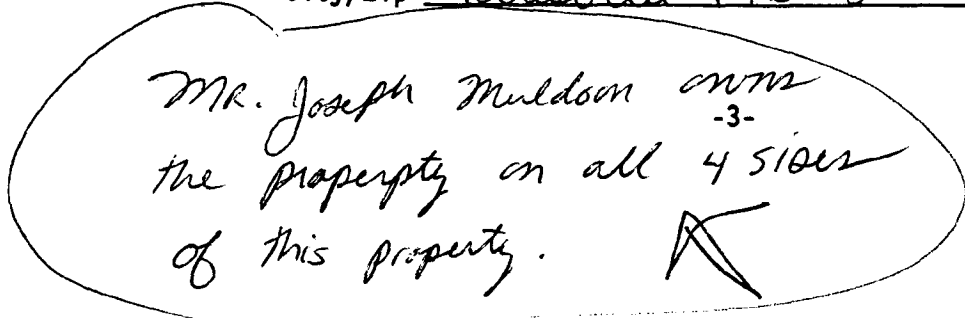 Mr. Joseph Muldoon owns
-3-
the properpty on all 4 sides
of this property.